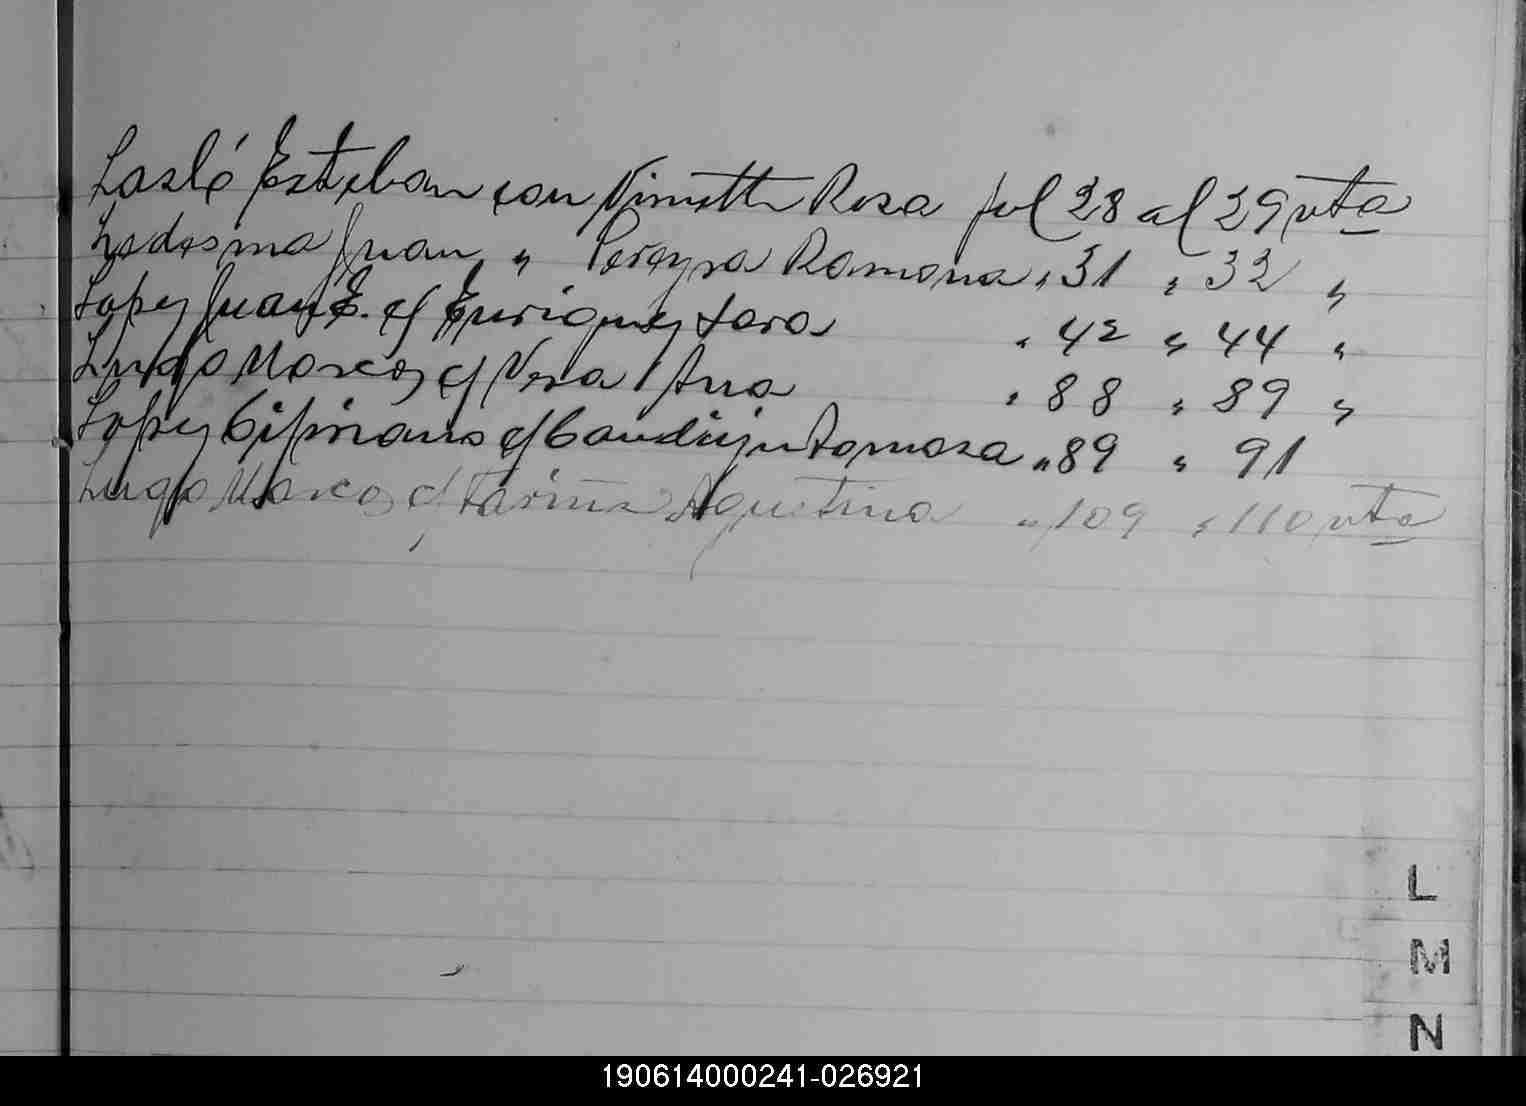 Lasló Esteban con Vinetti Rosa fol 28 al 29 vta
Ledesma Juan " Pereyra Ramona " 31 " 32 "
Lopez Juan E. c/ Enriquez Sara " 42 " 44 "
Lugo Marcos c/ Vera Ana " 88 " 89 "
Lopez Cipriano c/ Tomasa " 89 " 91
Lugo Marcos c/ Fariña Agustina " 109 " 110 vta
L
M
N
190614000241-026921